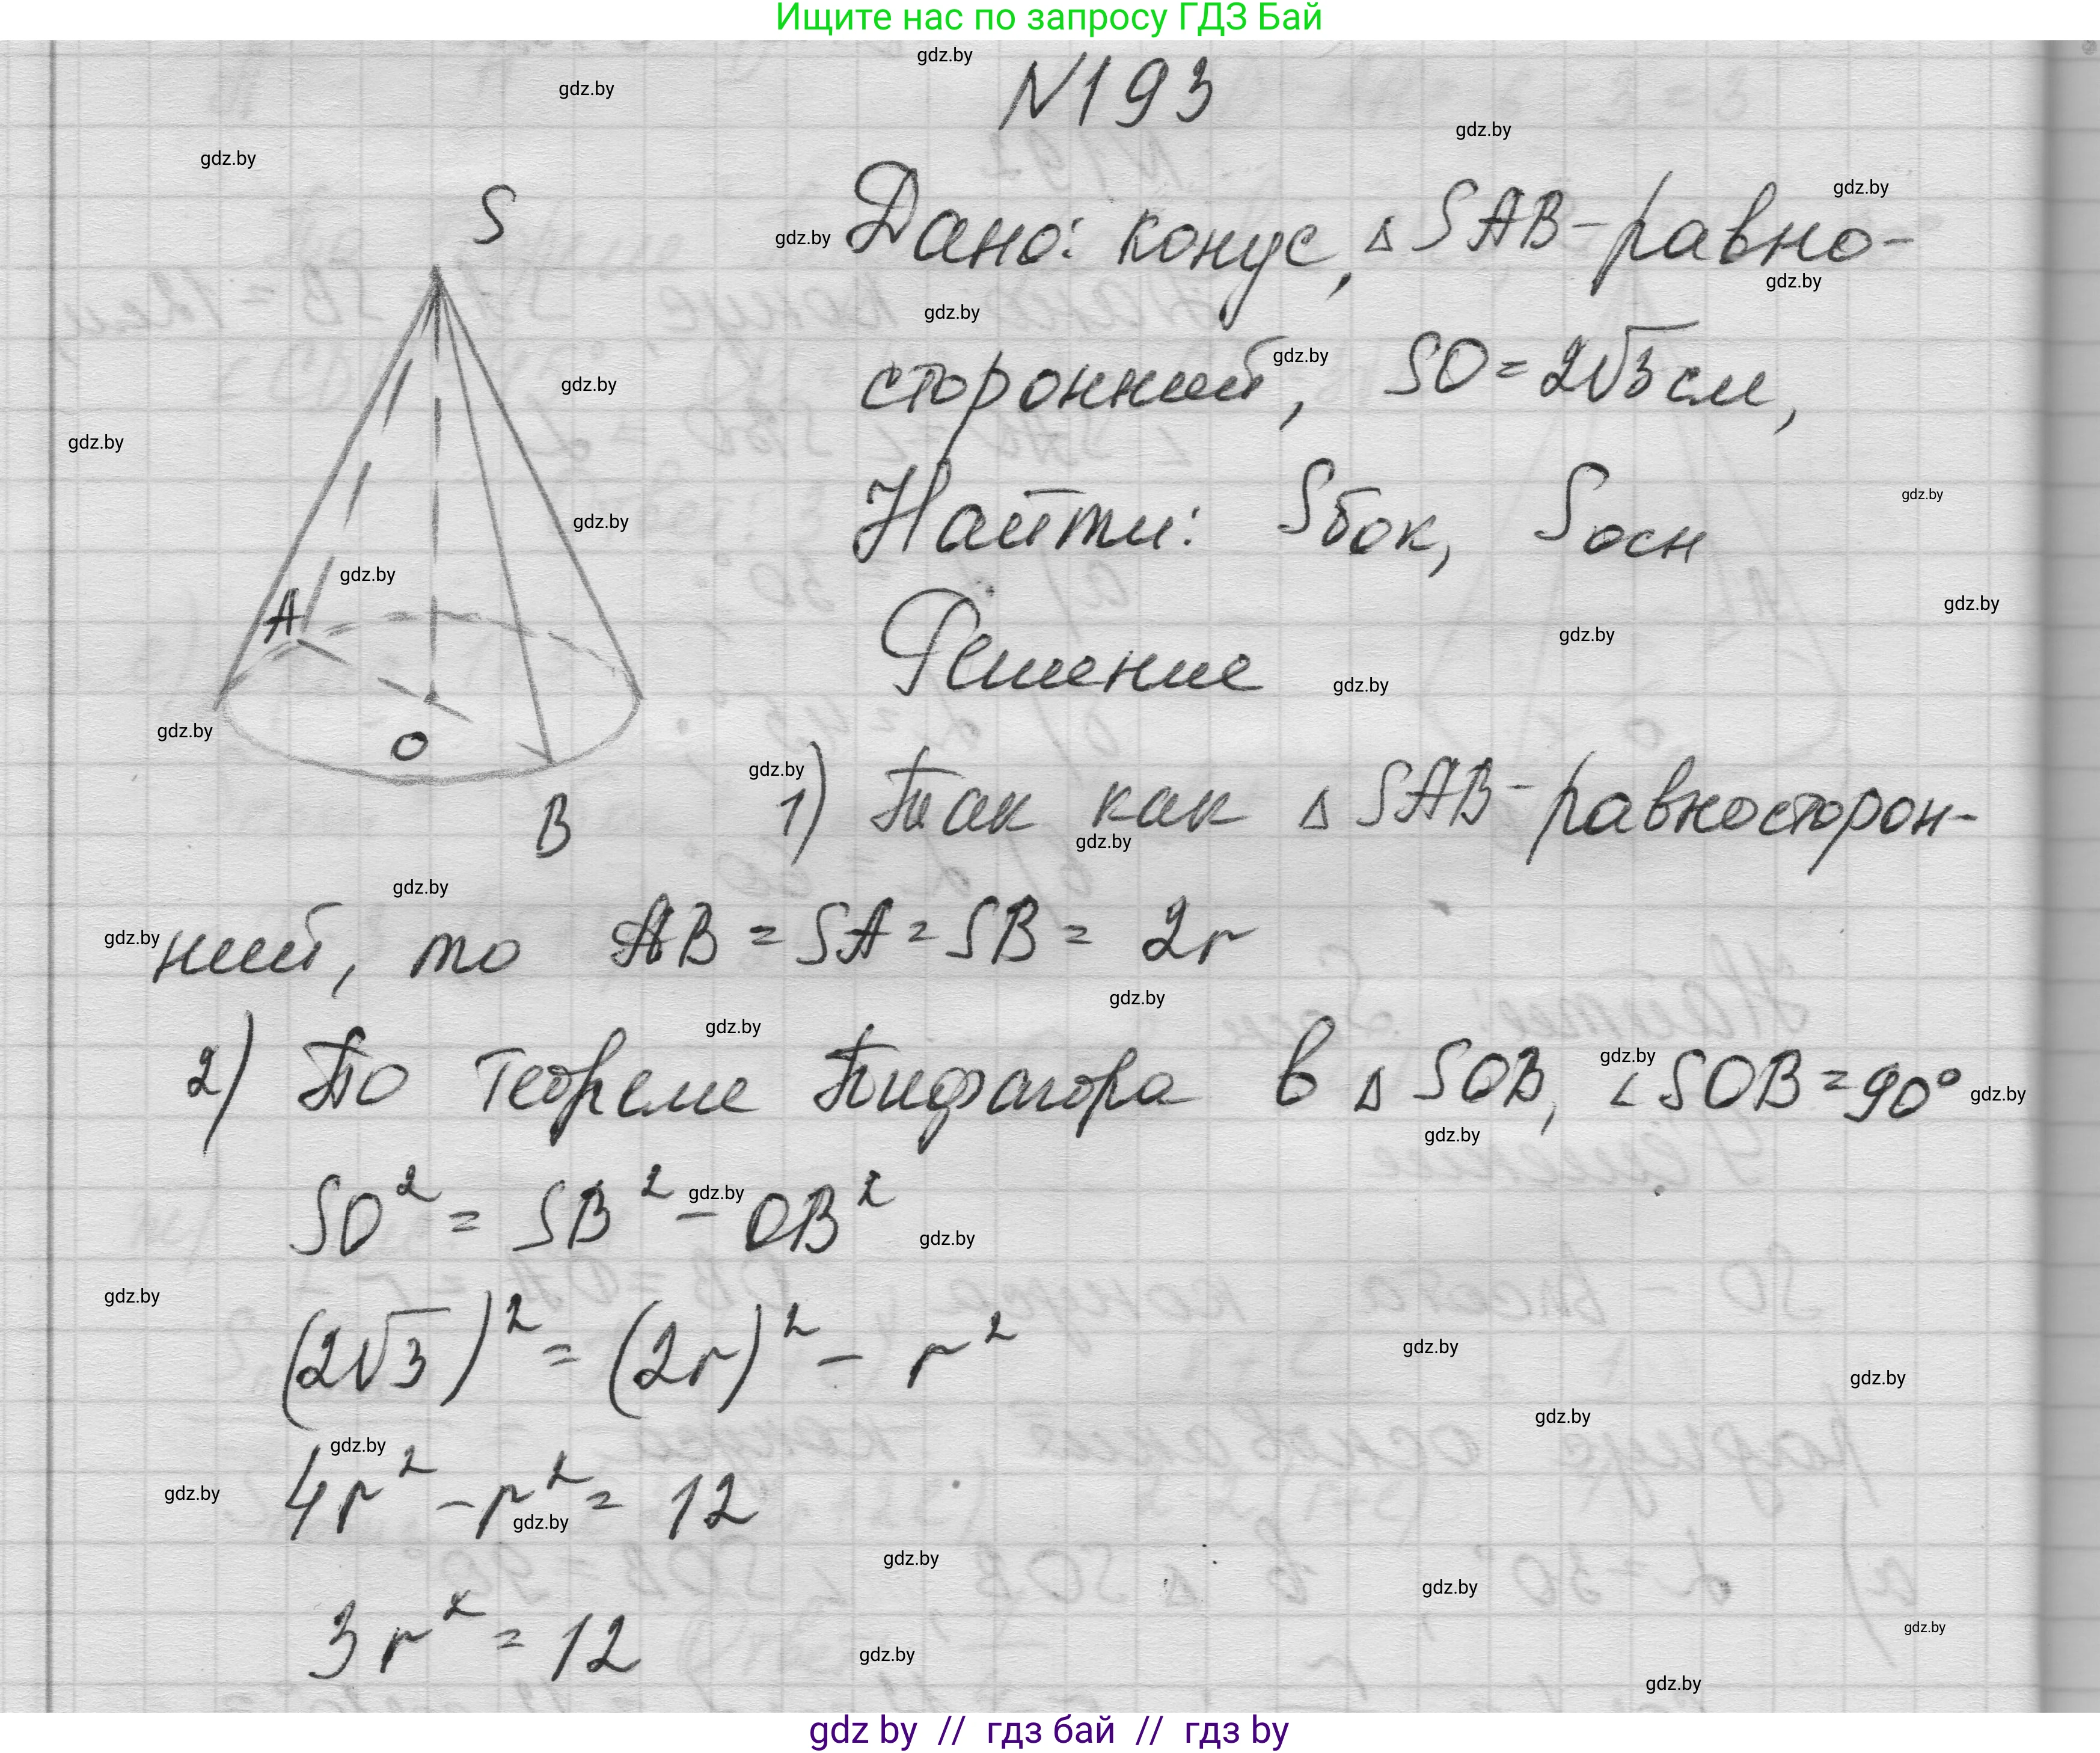 Ищите нас по запросу ГДЗ Бай
N193
Дано: конус, △ SAB - равно-
сторонний, SO = 2√3 см,
Найти: Sбок, Sосн
Решение
S
A
O
B
1) Так как △ SAB - равносторон-
ний, то AB = SA = SB = 2r
2) По теореме Пифагора в △ SOB, ∠SOB = 90°
SO² = SB² - OB²
(2√3)² = (2r)² - r²
4r² - r² = 12
3r² = 12
gdz by // гдз бай // гдз by
gdz.by